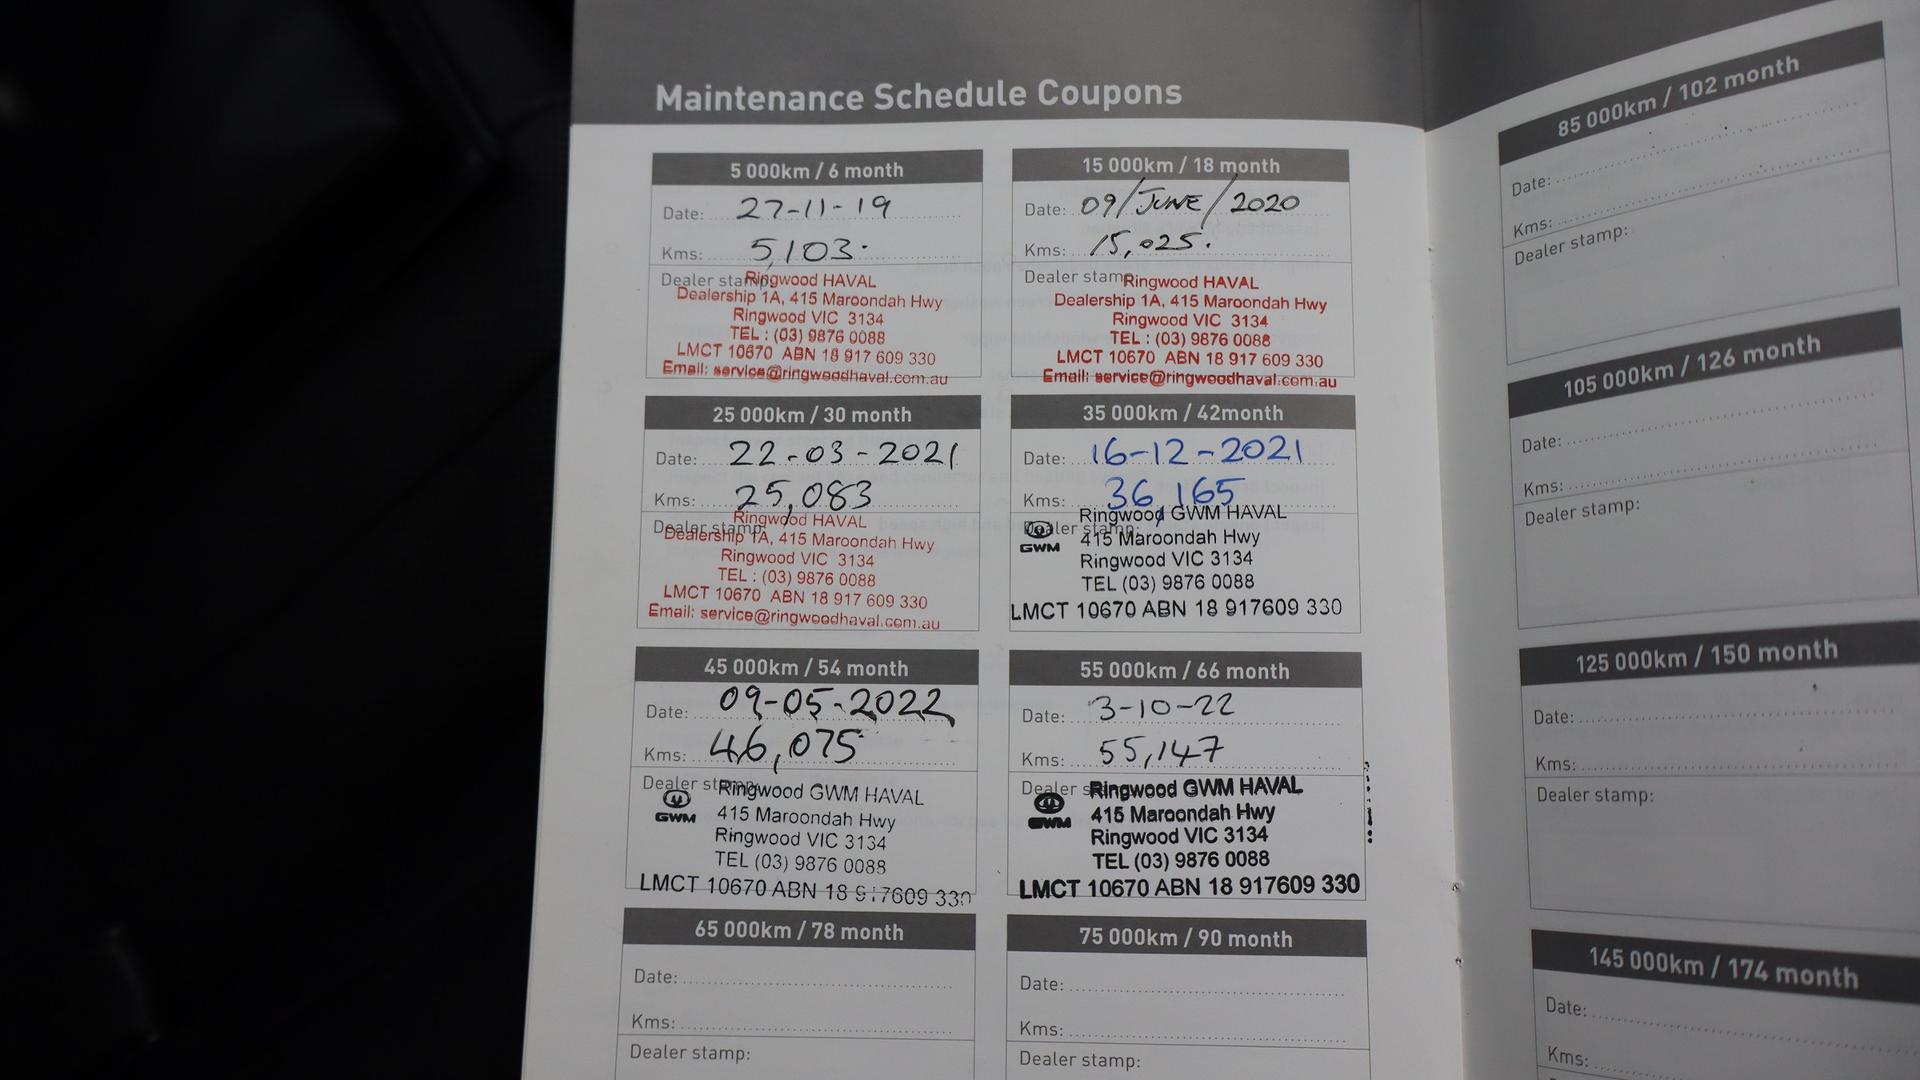 Maintenance Schedule Coupons
5 000km / 6 month
Date: 27-11-19
Kms: 5,103.
Dealer stamp:
Ringwood HAVAL
Dealership 1A, 415 Maroondah Hwy
Ringwood VIC 3134
TEL : (03) 9876 0088
LMCT 10670 ABN 18 917 609 330
Email: service@ringwoodhaval.com.au
15 000km / 18 month
Date: 09/JUNE/2020
Kms: 15,025.
Dealer stamp:
Ringwood HAVAL
Dealership 1A, 415 Maroondah Hwy
Ringwood VIC 3134
TEL : (03) 9876 0088
LMCT 10670 ABN 18 917 609 330
Email: service@ringwoodhaval.com.au
25 000km / 30 month
Date: 22-03-2021
Kms: 25,083
Dealer stamp:
Ringwood HAVAL
Dealership 1A, 415 Maroondah Hwy
Ringwood VIC 3134
TEL : (03) 9876 0088
LMCT 10670 ABN 18 917 609 330
Email: service@ringwoodhaval.com.au
35 000km / 42month
Date: 16-12-2021
Kms: 36,165
Dealer stamp:
GWM
Ringwood GWM HAVAL
415 Maroondah Hwy
Ringwood VIC 3134
TEL (03) 9876 0088
LMCT 10670 ABN 18 917609 330
45 000km / 54 month
Date: 09-05-2022
Kms: 46,075
Dealer stamp:
GWM
Ringwood GWM HAVAL
415 Maroondah Hwy
Ringwood VIC 3134
TEL (03) 9876 0088
LMCT 10670 ABN 18 917609 330
55 000km / 66 month
Date: 3-10-22
Kms: 55,147
Dealer s
GWM
Ringwood GWM HAVAL
415 Maroondah Hwy
Ringwood VIC 3134
TEL (03) 9876 0088
LMCT 10670 ABN 18 917609 330
65 000km / 78 month
Date:
Kms:
Dealer stamp:
75 000km / 90 month
Date:
Kms:
Dealer stamp:
85 000km / 102 month
Date:
Kms:
Dealer stamp:
105 000km / 126 month
Date:
Kms:
Dealer stamp:
125 000km / 150 month
Date:
Kms:
Dealer stamp:
145 000km / 174 month
Date:
Kms: